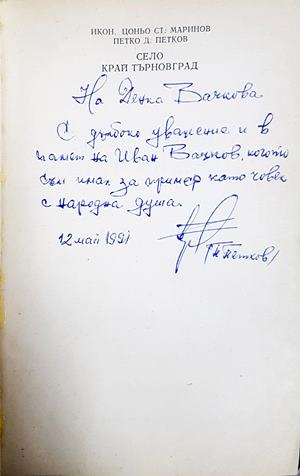 ИКОН. ЦОНЬО СТ. МАРИНОВ
ПЕТКО Д. ПЕТКОВ
СЕЛО
КРАЙ ТЪРНОВГРАД
На Денка Вачкова
С дълбоко уважение и в
памет на Иван Вачков, когото
съм имал за пример като човек
с народна душа.
12 май 1991
(П Петков)